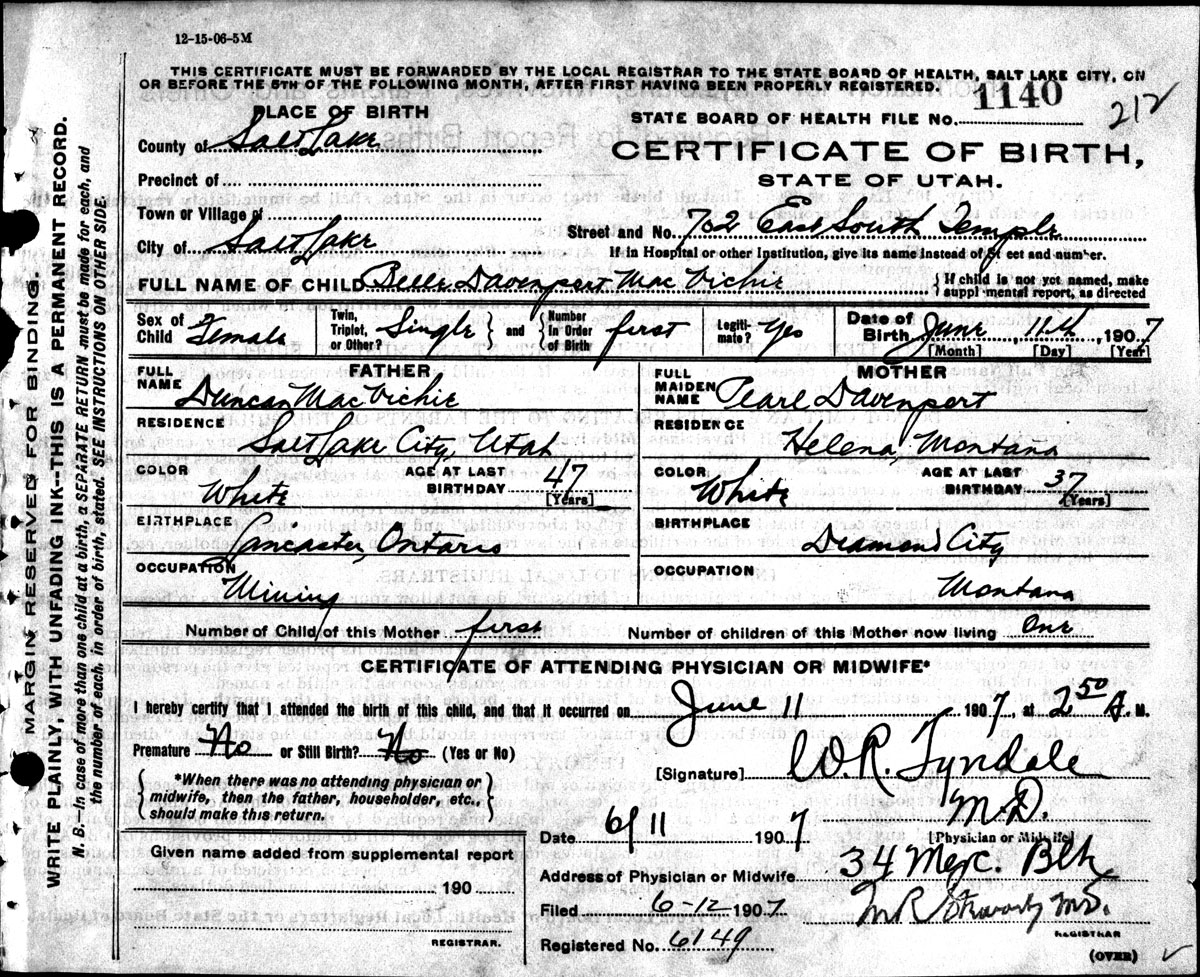 12-15-06-5M
THIS CERTIFICATE MUST BE FORWARDED BY THE LOCAL REGISTRAR TO THE STATE BOARD OF HEALTH, SALT LAKE CITY, ON
OR BEFORE THE 5TH OF THE FOLLOWING MONTH, AFTER FIRST HAVING BEEN PROPERLY REGISTERED.
PLACE OF BIRTH
STATE BOARD OF HEALTH FILE No. 1140
212
County of Salt Lake
CERTIFICATE OF BIRTH,
STATE OF UTAH.
Precinct of
Town or Village of
City of Salt Lake
Street and No. 732 East South Temple
If in Hospital or other Institution, give its name instead of St eet and number.
FULL NAME OF CHILD Belle Davenport Mac Vichie
{ If child is not yet named, make
suppl mental report, as directed
Sex of Child Female
Twin, Triplet, or Other? Single } and { Number In Order of Birth first
Legiti- mate? Yes
Date of Birth June 11th, 1907
[Month] [Day] [Year]
FATHER
FULL NAME Duncan MacVichie
RESIDENCE Salt Lake City, Utah
COLOR White
AGE AT LAST BIRTHDAY 47 [Years]
BIRTHPLACE Lancaster, Ontario
OCCUPATION Mining
MOTHER
FULL MAIDEN NAME Pearl Davenport
RESIDENCE Helena, Montana
COLOR White
AGE AT LAST BIRTHDAY 37 [Years]
BIRTHPLACE Diamond City
OCCUPATION Montana
Number of Child of this Mother first
Number of children of this Mother now living One
CERTIFICATE OF ATTENDING PHYSICIAN OR MIDWIFE*
I hereby certify that I attended the birth of this child, and that it occurred on June 11 1907, at 2 50 A. M.
Premature No or Still Birth? No (Yes or No)
{ *When there was no attending physician or
midwife, then the father, householder, etc.,
should make this return. }
[Signature] W. R. Tyndale
M.D.
[Physician or Midwife]
Date 6/11 1907
Address of Physician or Midwife 34 Merc. Blk
Given name added from supplemental report
190
REGISTRAR.
Filed 6-12 1907
M R M.D.
REGISTRAR
Registered No. 6149
(OVER)
MARGIN RESERVED FOR BINDING.
WRITE PLAINLY, WITH UNFADING INK--THIS IS A PERMANENT RECORD.
N. B.--In case of more than one child at a birth, a SEPARATE RETURN must be made for each, and
the number of each, in order of birth, stated. SEE INSTRUCTIONS ON OTHER SIDE.